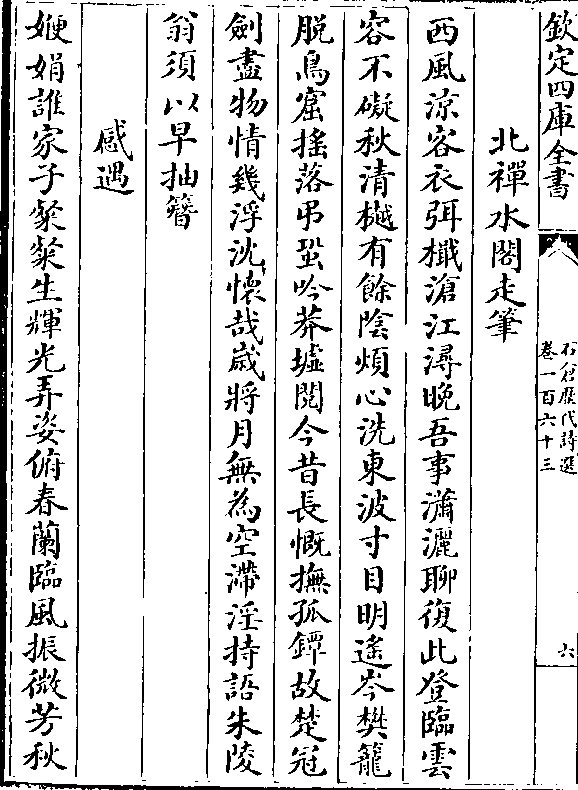 欽定四庫全書
石倉歷代詩選
卷一百六十三
六
北禪水閣走筆
西風涼客衣弭檝滄江潯晚吾事瀟灑聊復此登臨雲
容不礙秋清樾有餘陰煩心洗東波寸目明遙岑樊籠
脫鳥窟搖落弔蛩吟莽墟閱今昔長慨撫孤鐔故楚冠
劍盡物情幾浮沈懷哉歲將月無為空滯淫持語朱陵
翁須以早抽簪
感遇
㛹娟誰家子粲粲生輝光弄姿俯春蘭臨風振微芳秋